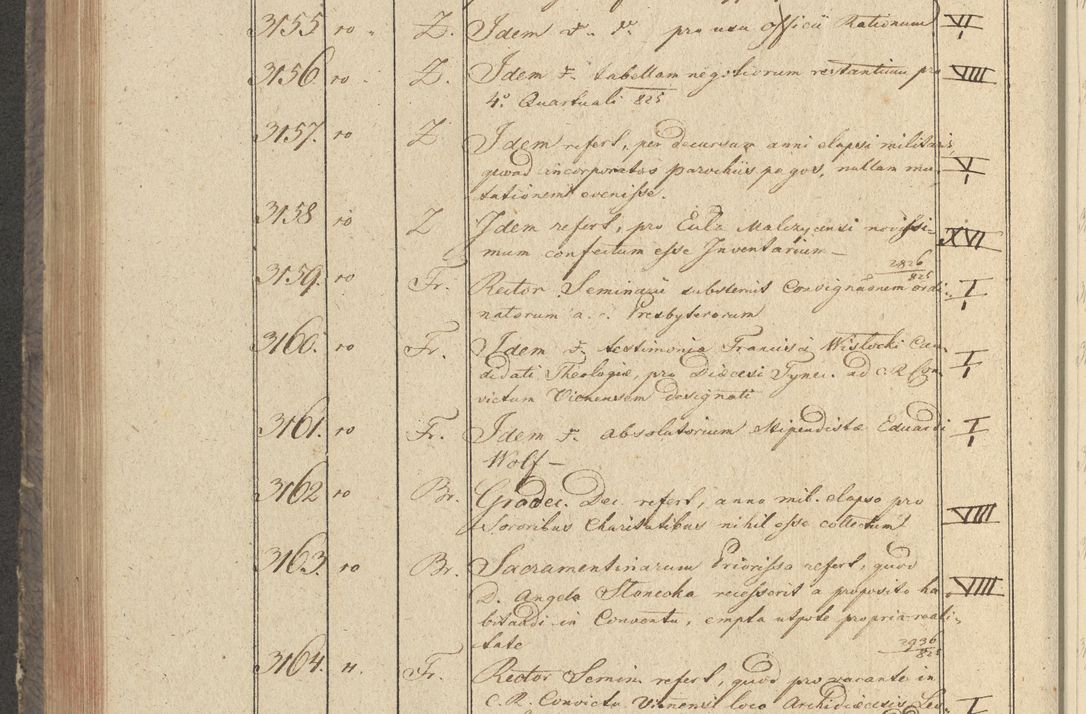 3155 10 „ Z. Idem s. v. pro usu Officii Rationum VI/I
3156 10 „ Z. Idem s. tabellam negotiorum restantium pro VIII
4º Quartuali 825
3157. 10 Z Idem refert, per decursum anni elapsi militaris
quoad incorporatos parochiis pagos, nullam mu- V/I
tationem evenisse.
3158 10 Z Idem refert, pro Eccla Malczycensi novissi-
mum confectum esse Inventarium — XVI
2826/825
3159. 10 Fr. Rector Seminarii substernit Consignaonem ordi- I/I
natorum a. c. Presbyterorum
3160. 10 Fr. Idem s. testimonia Francisci Wisłocki Can-
didati Theologiae, pro Dioecesi Tynec. ad C. R. Con- I/I
victum Viennensem designati
3161. 10 Fr. Idem s. absolutorium Stipendistae Eduardi I/I
Wolf —
3162 10 Br. Grodec. Dec. refert, anno mil. elapso pro
Sororibus Charitatibus nihil esse collectum VIII
3163. 10 Br. Sacramentinarum Priorissa refert, quod
D. Angela Słonecka recesserit a proposito ha- VIII
bitandi in Conventu, empta utpote propria reali-
tate 2936/825
3164. 11. Fr. Rector Semin. refert, quod pro vacante in
C. R. Convictu Viennensi loco Archidioecesis Leo- I